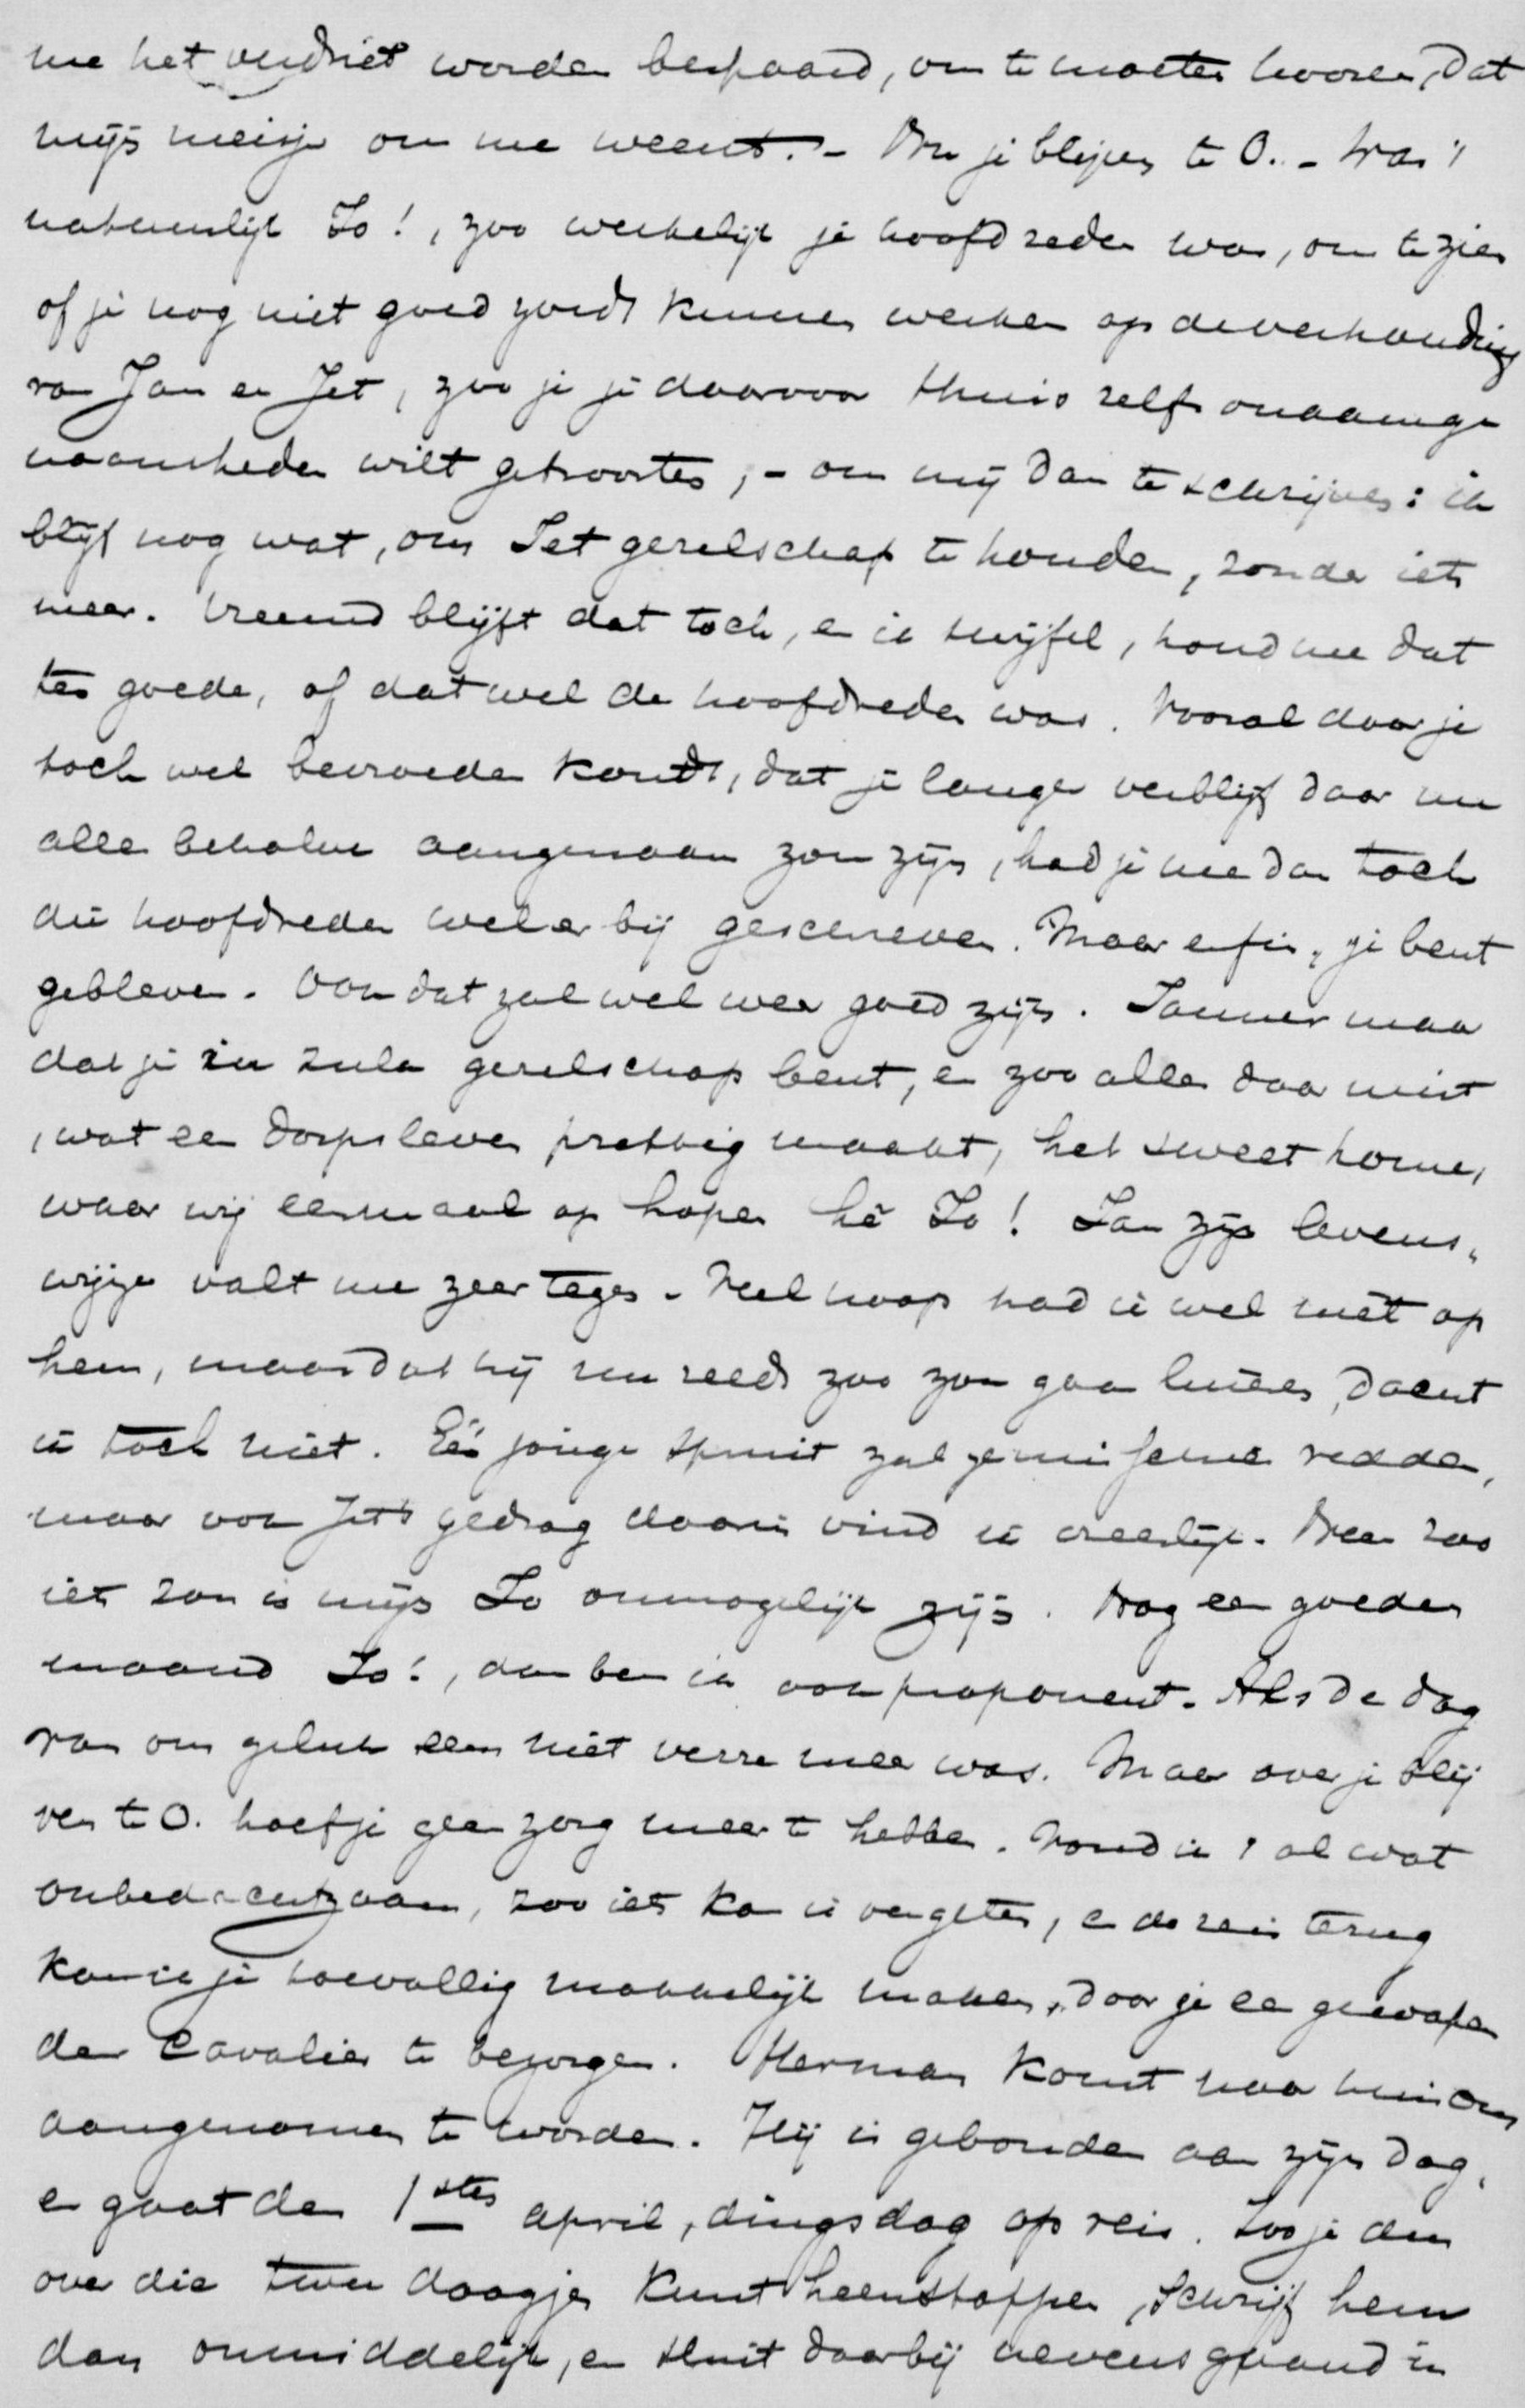 me het verdriet worden bespaard, om te moeten hooren, dat
mijn meisje om me weent. - Nu je blijven te O. - was 't
natuurlijk Jo!, zoo werkelijk je hoofdreden was, om te zien
of je nog niet goed zoudt kunnen werken op de verhouding
van Jan en Jet, zoo je je daarvoor thuis zelfs onaange
naamheden wilt getroosten, - om mij dan te schrijven: ik
blijf nog wat, om Jet gezelschap te houden, zonder iets
meer. Vreemd blijft dat toch, en ik twijfel, houd me dat
ten goede, of dat wel de hoofdreden was. Vooral daar je
toch wel bevroeden kondt, dat je langer verblijf daar me
alles behalve aangenaam zou zijn, had je me dan toch
die hoofdreden wel er bij geschreven. Maar enfin, je bent
gebleven. Ook dat zal wel weer goed zijn. Jammer maar
dat je in zulk gezelschap bent, en zoo alles daar mist
, wat een dorpsleven prettig maakt, het sweet home,
waar wij eenmaal op hopen hè Jo! Jan zijn levens„
wijze valt me zeer tegen. Veel hoop had ik wel niet op
hem, maar dat hij nu reeds zoo zou gaan luieren, dacht
ik toch niet. Eén jonge spruit zal ze niet redden,
maar ook Jet's gedrag daarin vind ik vreeselijk. Neen zoo
iets zou in mijn Jo onmogelijk zijn. Nog een goeden
maand Jo!, dan ben ik ook proponent. Als de dag
van ons geluk een niet verre meer was. Maar over je blij
ven te O. hoef je geen zorg meer te hebben. Vond ik 't al wat
onbedachtzaam, zoo iets kan ik vergeten, en de reis terug
kan ik je toevallig makkelijk maken, door je een gewapen
den Cavalier te bezorgen. Herman komt naar huis om
aangenomen te worden. Hij is gebonden aan zijn dag,
en gaat den 1sten april, dingsdag op reis. Zoo je dan
over die twee daagjes kunt heenstappen, schrijf hem
dan onmiddelijk, en sluit daarbij nevensgaand in